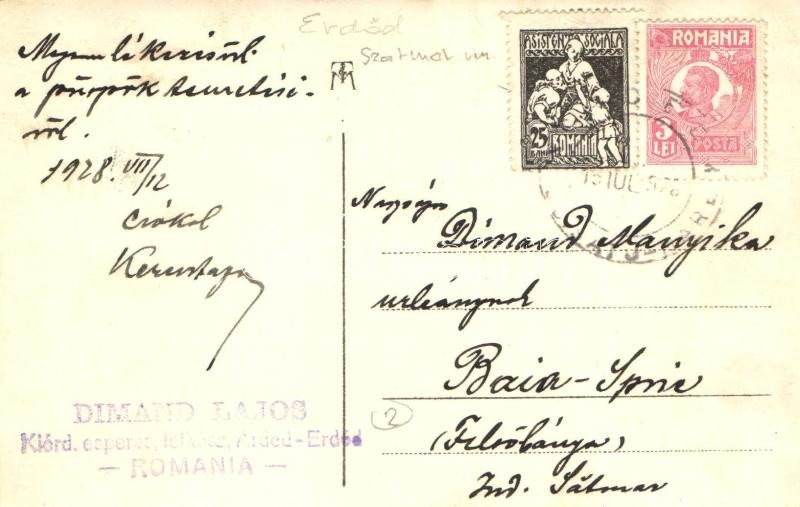 Erdőd
Szatmár vm.
Megemlékezésül
a püspök temetésé-
ről.
1928. VII/12
Csókol
Keresztapa
DIMAND LAJOS
Kiérd. esperes, lelkész, Arded-Erdőd
— ROMANIA —
ASISTENȚA SOCIALA
25
BANI
ROMANIA
ROMANIA
3
LEI
POSTA
13 IUL. 928
Nagysás
Dimand Manyika
urleánynak
Baia-Sprie
(Felsőbánya)
Jud. Sătmar
2